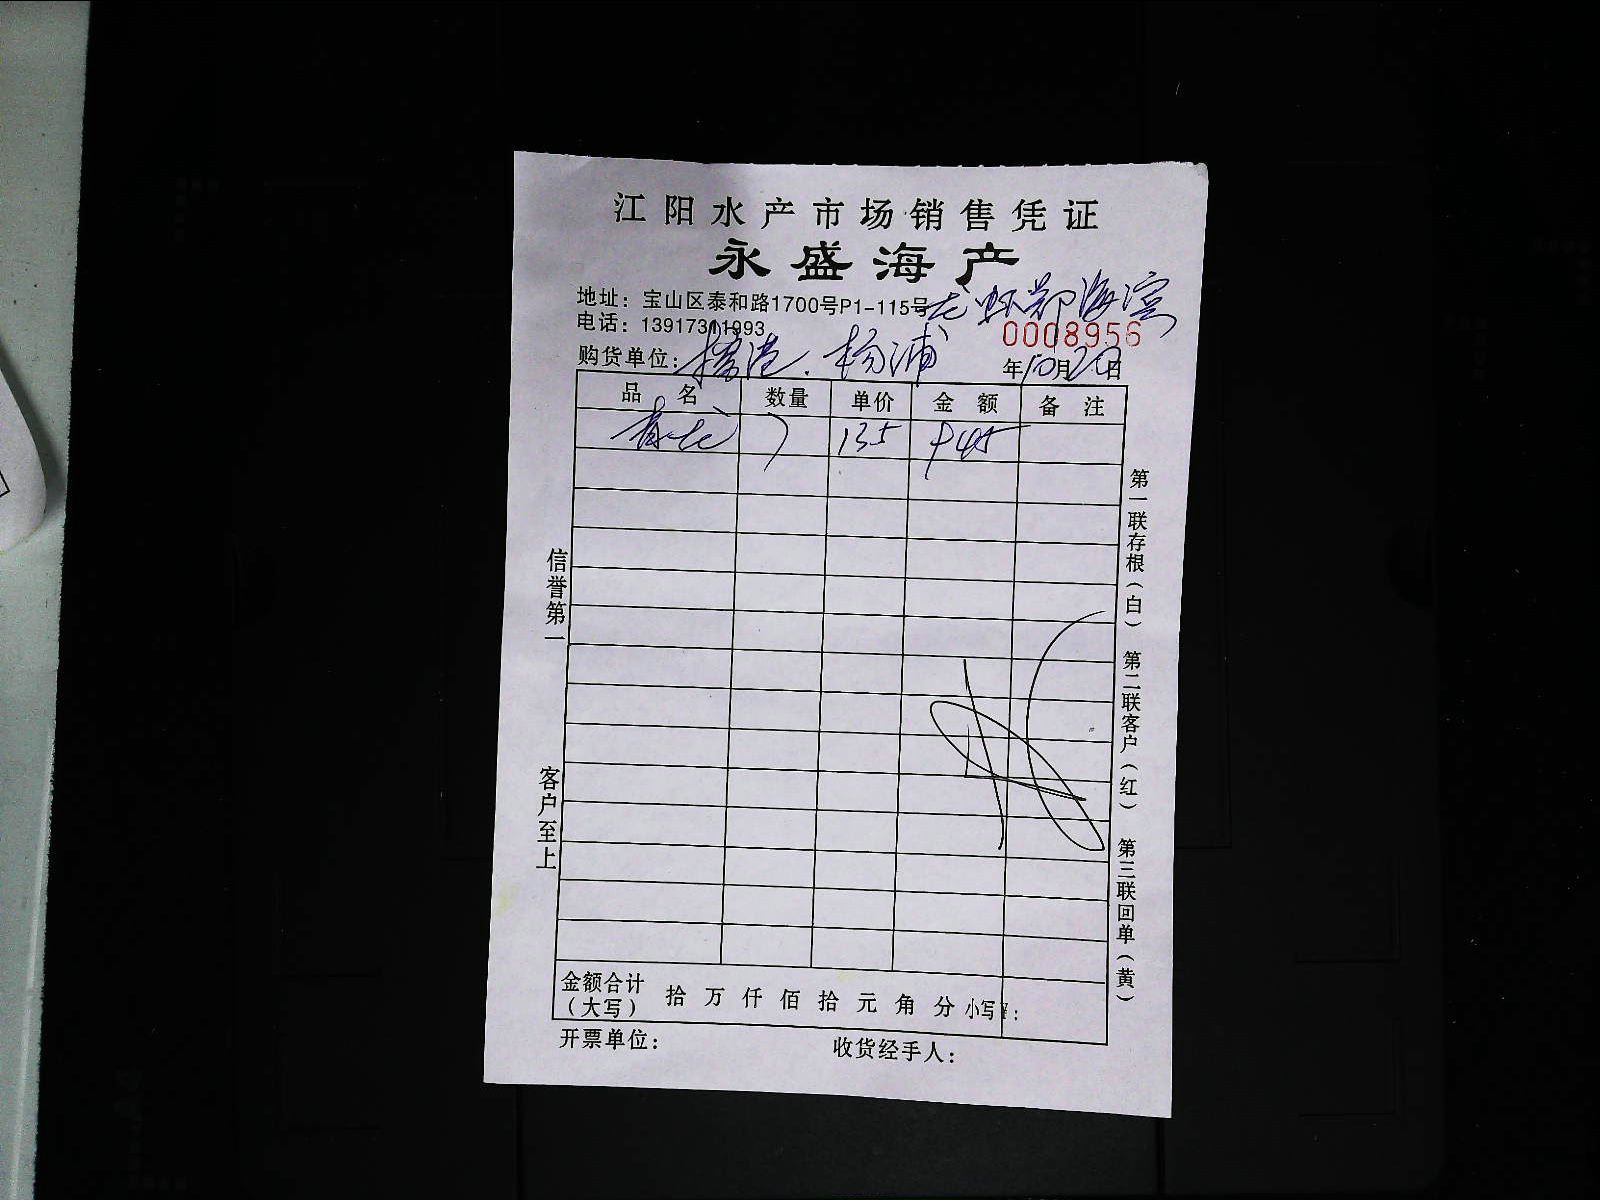 江阳水产市场销售凭证
永盛海产
地址：宝山区泰和路1700号P1-115号 龙虾郑海滨
电话：13917311993 0008956
购货单位： 杨浦 年10月20日
品名 数量 单价 金额 备注
青龙 7 135 945
信誉第一
客户至上
第一联存根（白） 第二联客户（红） 第三联回单（黄）
金额合计（大写） 拾 万 仟 佰 拾 元 角 分 小写¥：
开票单位： 收货经手人：